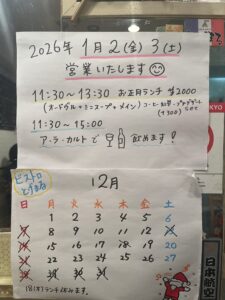 2026年 1月2(金) 3(土)
営業いたします
11:30～13:30 お正月ランチ ¥2000
(オードヴル+ミニスープ+メイン)
11:30～15:00
ア・ラ・カルトで 飲めます!
ビストロ
12月
日 月 火 水 木 金 土
1 2 3 4 5 6
7 8 9 10 11 12 13
14 15 16 17 18 19 20
21 22 23 24 25 26 27
28 29 30 31
18(木)ランチ休みます。
日本航空
TOKYO